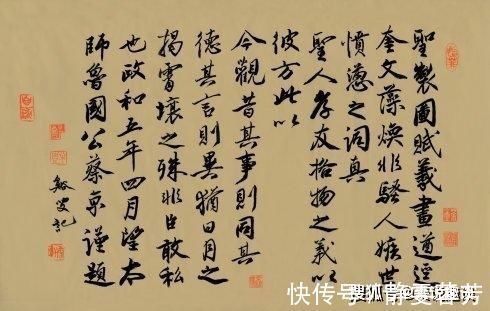 聖製圖賦羲畫道
奎文藻煥非騷人嫉世
憤懣之詞真
聖人孝友格物之義以
彼方此以
今觀昔其事則同其
德其言則異猶日月之
揭霄壤之殊非臣敢私
也政和五年四月望太
師魯國公蔡京謹題
叟記
搜狐
快传号